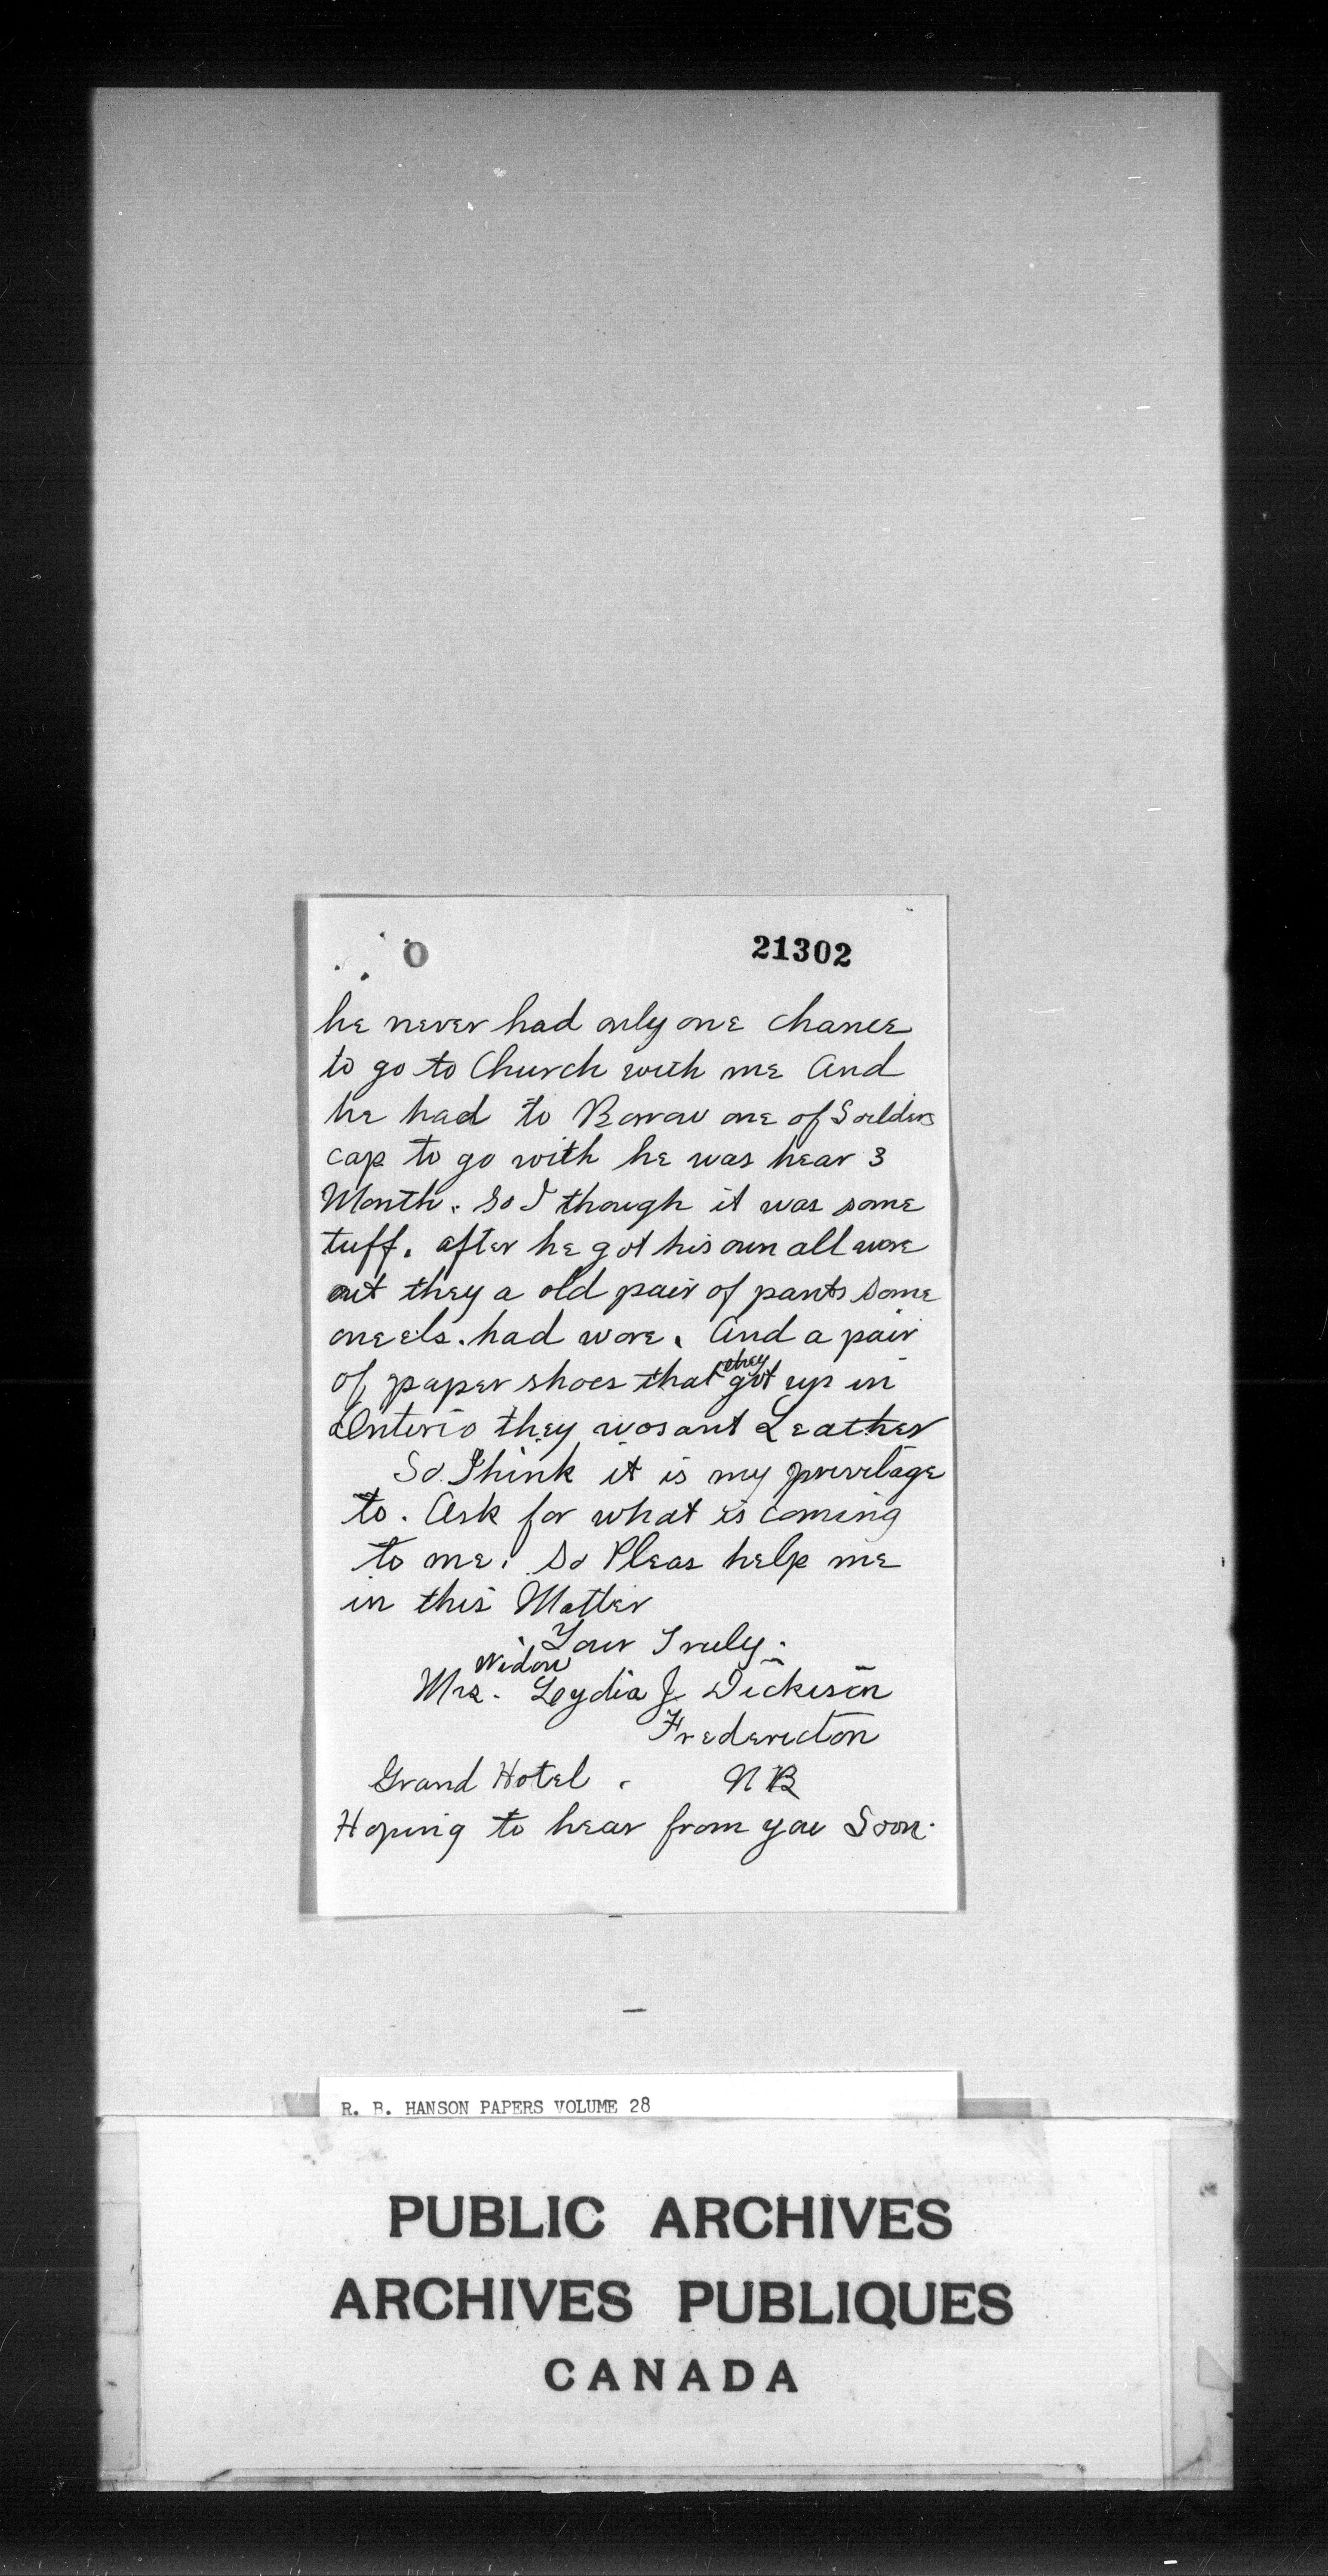 21302
he never had only one chance
to go to Church with me And
he had to Borrow one of Soilders
cap to go with he was hear 3
Month. So I though it was some
tuff. after he got his own all wore
out they a old pair of pants some
one els. had wore. And a pair
of paper shoes that they got up in
Onterio they wosant Leather
So. Think it is my privilage
to. Ask for what is coming
to me. So Pleas help me
in this Matter
Your Truly.
Widow
Mrs. Leydia J. Dickison
Fredericton
Grand Hotel. N B
Hoping to hear from you Soon.
R. B. HANSON PAPERS VOLUME 28
PUBLIC ARCHIVES
ARCHIVES PUBLIQUES
CANADA